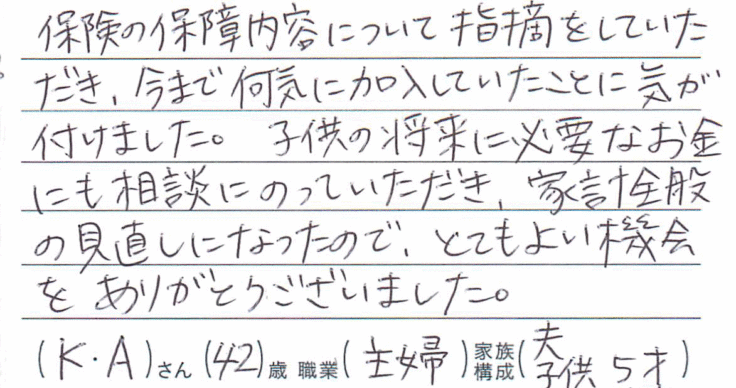 保険の保障内容について指摘をしていた
だき、今まで何気に加入していたことに気が
付けました。 子供の将来に必要なお金
にも相談にのっていただき、家計全般
の見直しになったので、とてもよい機会
を ありがとうございました。
(K・A)さん (42)歳 職業(主婦)家族構成(夫 子供 5才)